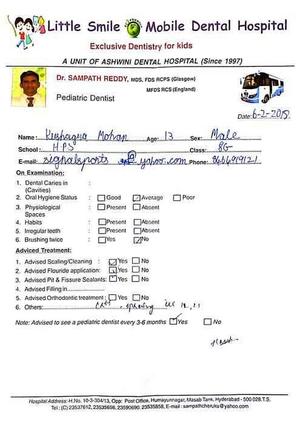 Little Smile Mobile Dental Hospital
Exclusive Dentistry for kids
A UNIT OF ASHWINI DENTAL HOSPITAL (Since 1997)
Dr. SAMPATH REDDY, MDS, FDS RCPS (Glasgow)
MFDS RCS (England)
Pediatric Dentist
Date: 6-2-2015
Name: Kushagra Mohan Age: 13 Sex: Male
School: HPS Class: 8G
E-mail: @yahoo.com Phone:
On Examination:
1. Dental Caries in :
(Cavities)
2. Oral Hygiene Status : Good Average Poor
3. Physiological : Present Absent
Spaces
4. Habits : Present Absent
5. Irregular teeth : Present Absent
6. Brushing twice : Yes No
Adviced Treatment:
1. Advised Scaling/Cleaning : Yes No
2. Advised Flouride application : Yes No
3. Advised Pit & Fissure Sealants : Yes No
4. Advised Filling in
5. Advised Orthodontic treatment : Yes No
6. Others:
Note: Advised to see a pediatric dentist every 3-6 months Yes No
Hospital Address: H.No. 10-3-304/13, Opp: Post Office, Humayunnagar, Masab Tank, Hyderabad - 500 028.T.S.
Tel : (C) 23537612, 23535656, 23590690, 23535858, E-mail : sampathcheruku@yahoo.com